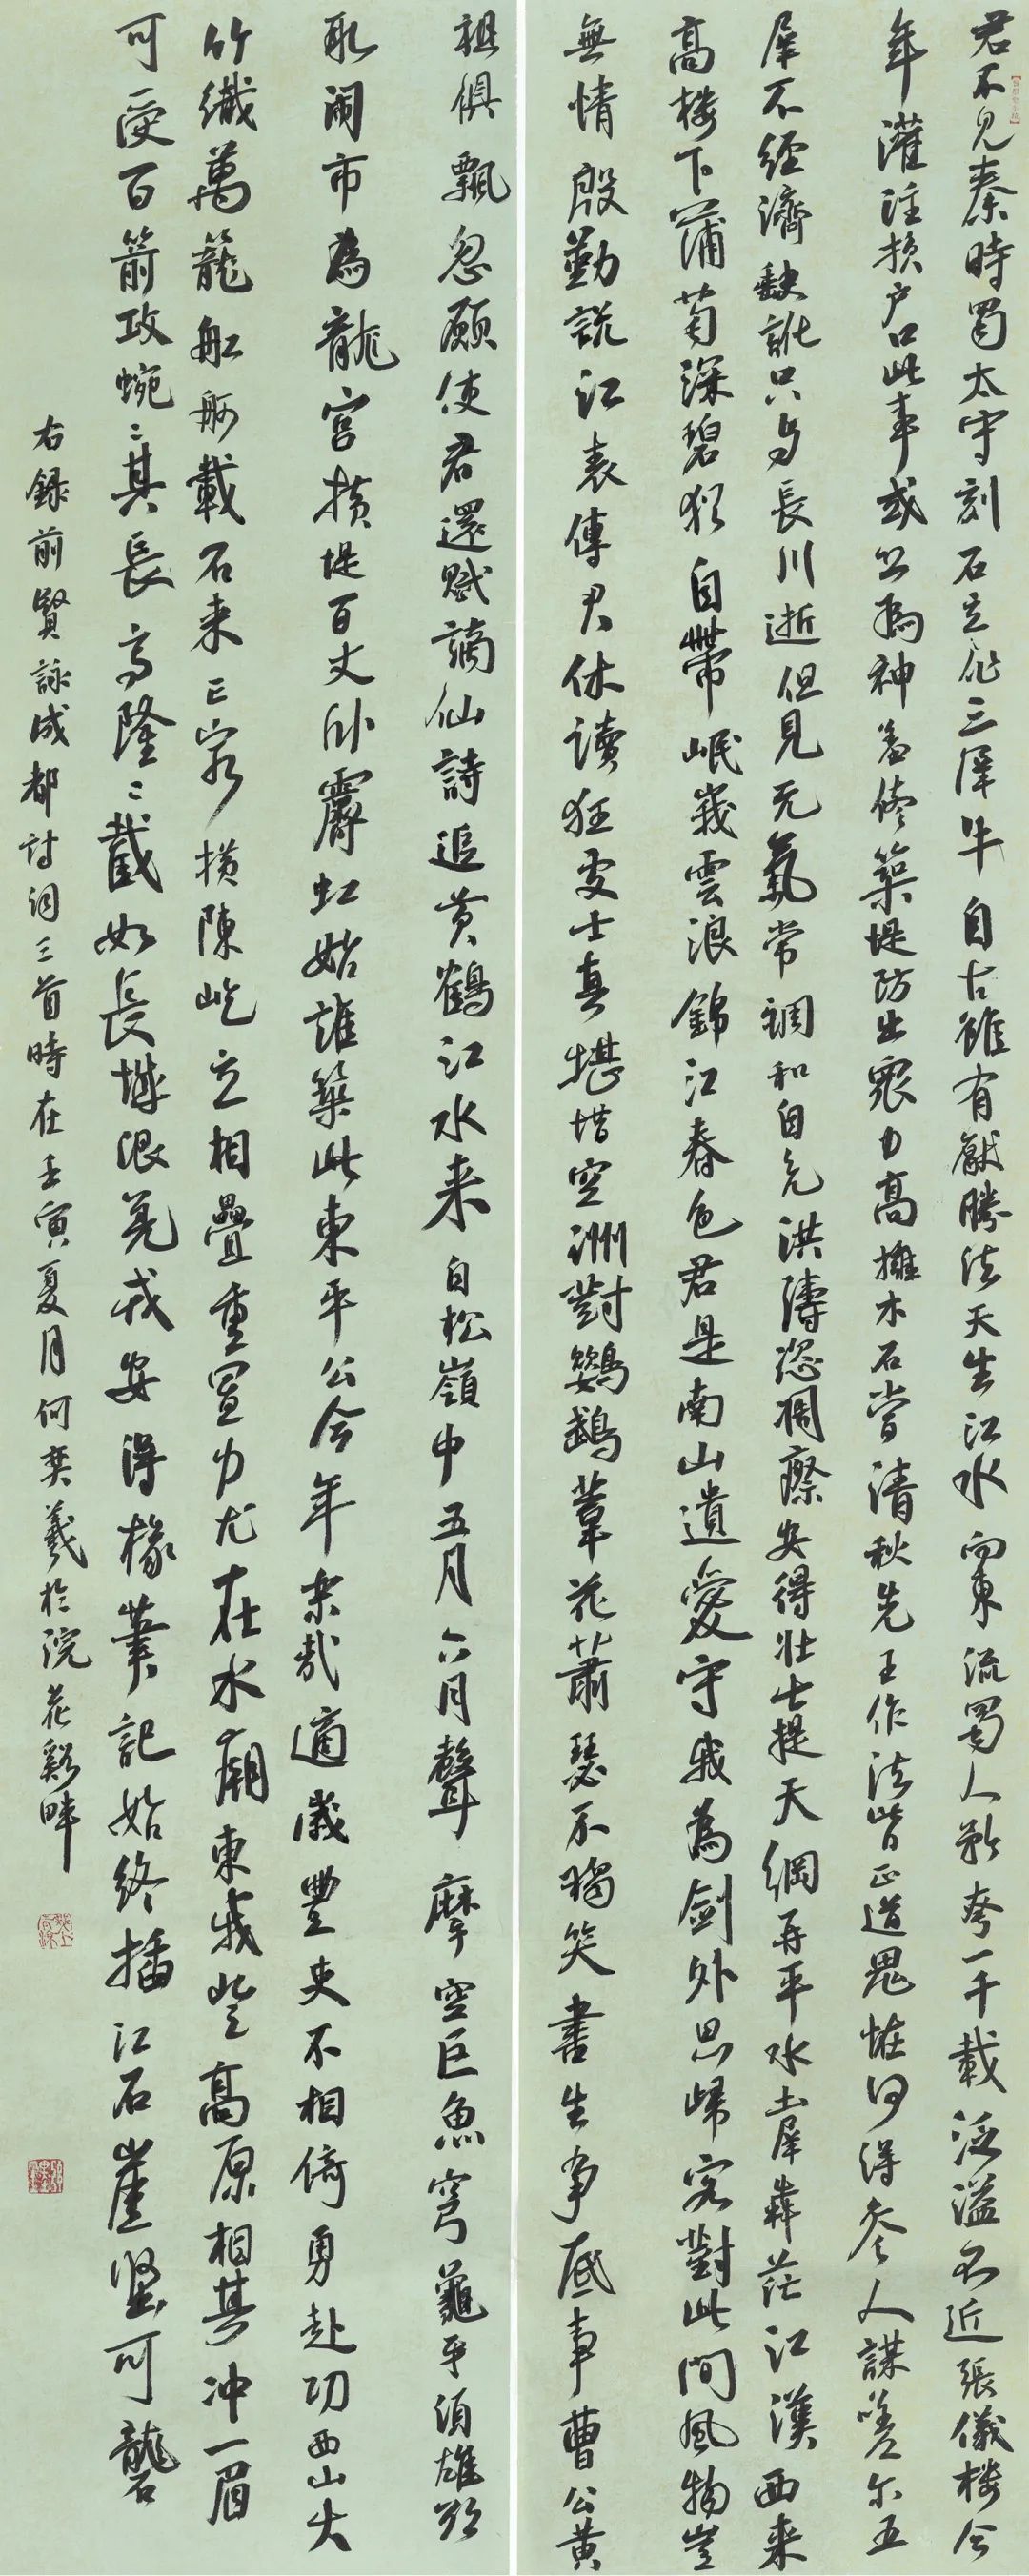 君不見秦時蜀太守刻石立作三犀牛自古雖有厭勝法天生江水向東流蜀人矜夸一千載泛溢不近張儀樓今
年灌注損户口此事或恐為神羞修築堤防出衆力高擁木石當清秋先王作法皆正道鬼怪何得參人謀嗟尔五
犀不經濟缺訛只与長川逝但見元氣常調和自免洪濤恣凋瘵安得壯士提天綱再平水土犀奔茫江漢西来
高樓下蒲萄深碧猶自帶岷峩雲浪錦江春色君是南山遺愛守我為劍外思歸客對此間風物豈
無情殷勤説江表傳君休讀狂處士真堪惜空洲對鸚鵡葦花蕭瑟不獨笑書生爭底事曹公黄
祖俱飄忽願使君還賦謫仙詩追黄鶴江水来自松嶺中五月六月聲摩空巨魚穹龜牙須雄欲
取闹市為龍宫横堤百丈卧霽虹始誰築此東平公今年樂哉適歲豐吏不相倚勇赴功西山大
竹織萬籠船舸載石来亡窮横陳屹立相疊重置力尤在水廟東我登高原相其冲一眉
可受百箭攻蜿〻其長高隆〻截如長城限羌戎安得椽筆記始終插江石崖堅可礱
右録前賢詠成都詩詞三首時在壬寅夏月何奕羲於浣花谿畔